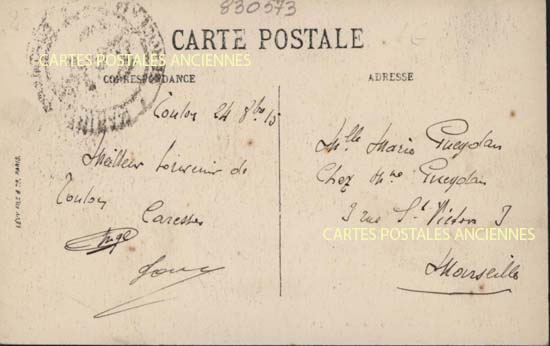 830573
CARTE POSTALE
CARTES POSTALES ANCIENNES
CORRESPONDANCE
ADRESSE
Toulon 24 8bre 15
Meilleur souvenir de
Toulon
Caresses
Ange
Melle Marie Gueydan
Chez Mme Gueydan
3 rue St Victor 3
CARTES POSTALES ANCIENNES
Marseille
LÉVY FILS & Cie PARIS